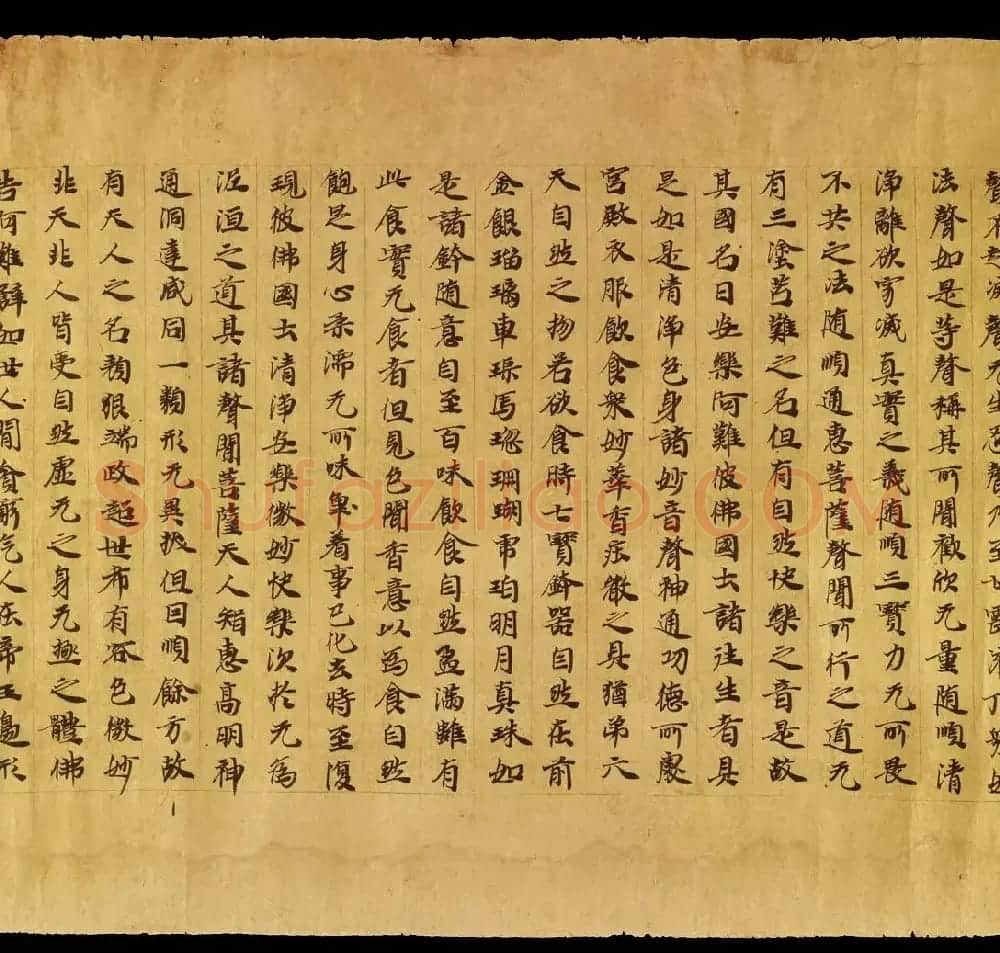 聲不起滅聲无生忍聲乃至甘露灌頂衆妙
法聲如是等聲稱其所聞歡欣无量随順清
淨離欲寂滅真實之義随順三寶力无所畏
不共之法随順通惠菩薩聲聞所行之道无
有三塗苦難之名但有自然快樂之音是故
其國名曰安樂阿難彼佛國土諸往生者具
足如是清淨色身諸妙音聲神通功德所處
宮殿衣服飲食衆妙華香莊嚴之具猶弟六
天自然之物若欲食時七寶鉢器自然在前
金銀瑠璃車璖馬瑙珊瑚虎珀明月真珠如
是諸鉢随意自至百味飲食自然盈滿雖有
此食實无食者但見色聞香意以為食自然
飽足身心柔濡无所味着事已化去時至復
現彼佛國土清淨安樂微妙快樂次於无為
泥洹之道其諸聲聞菩薩天人智惠高明神
通洞達咸同一類形无異狀但因順餘方故
有天人之名顏狠端政超世希有容色微妙
非天非人皆受自然虚无之身无極之體佛
告阿難譬如世人間貧窮乞人在帝王邊形
Shufaziliao.COM